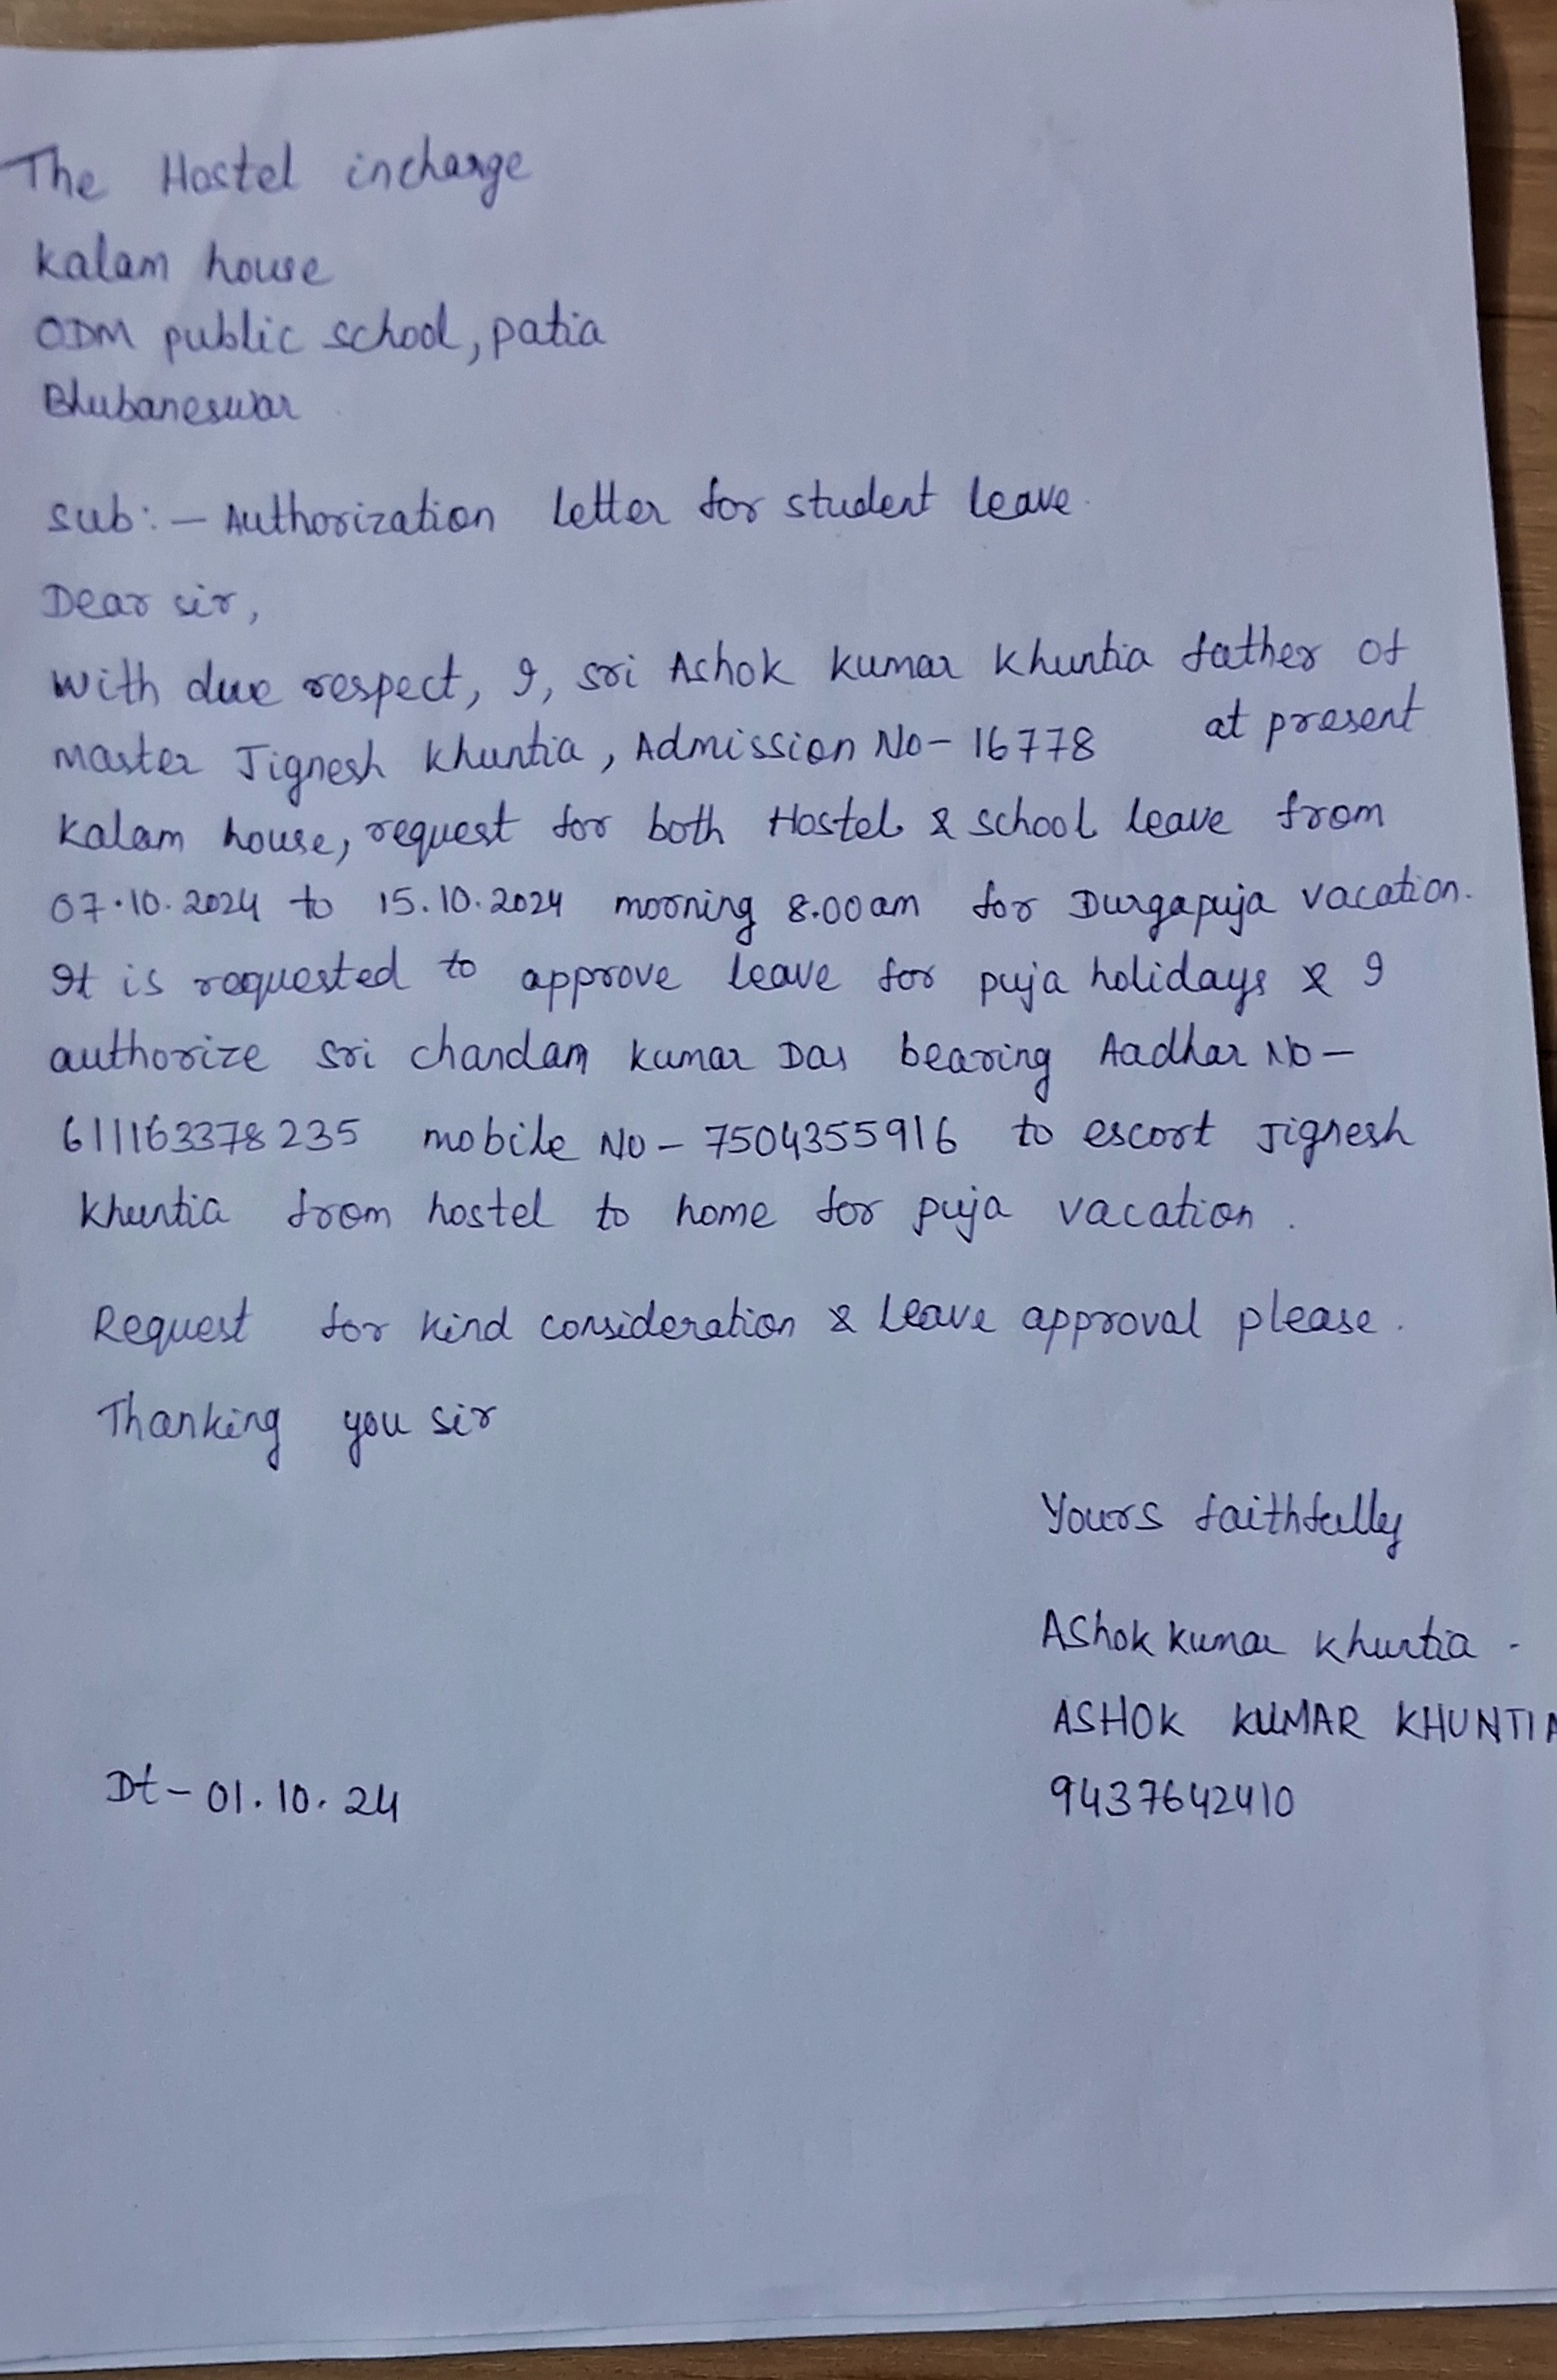 The Hostel incharge
Kalam house
ODM public school, patia
Bhubaneswar
Sub:- Authorization letter for student leave.
Dear sir,
With due respect, I, sri Ashok kumar Khuntia father of
master Jignesh Khuntia, Admission No- 16778 at present
Kalam house, request for both Hostel & school leave from
07.10.2024 to 15.10.2024 morning 8.00am for Durgapuja vacation.
It is requested to approve leave for puja holidays & I
authorize sri chandam kumar Das bearing Aadhar No-
611163378235 mobile No- 7504355916 to escort Jignesh
Khuntia from hostel to home for puja vacation.
Request for kind consideration & leave approval please.
Thanking you sir
Yours faithfully
Ashok kumar khuntia
ASHOK KUMAR KHUNTIA
Dt- 01.10.24
9437642410